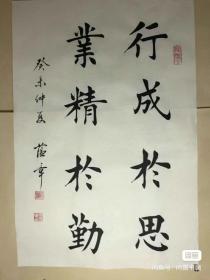 行成於思
業精於勤
癸未仲夏